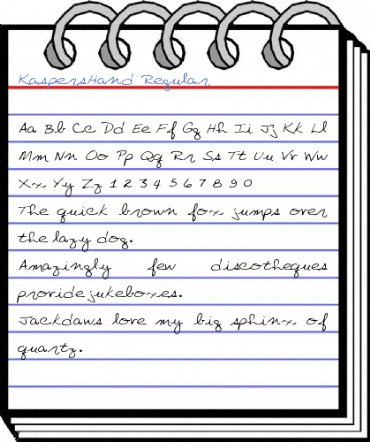 KaspersHand Regular
Aa Bb Cc Dd Ee Ff Gg Hh Ii Jj Kk Ll
Mm Nn Oo Pp Qq Rr Ss Tt Uu Vv Ww
Xx Yy Zz 1 2 3 4 5 6 7 8 9 0
The quick brown fox jumps over
the lazy dog.
Amazingly few discotheques
provide jukeboxes.
Jackdaws love my big sphinx of
quartz.